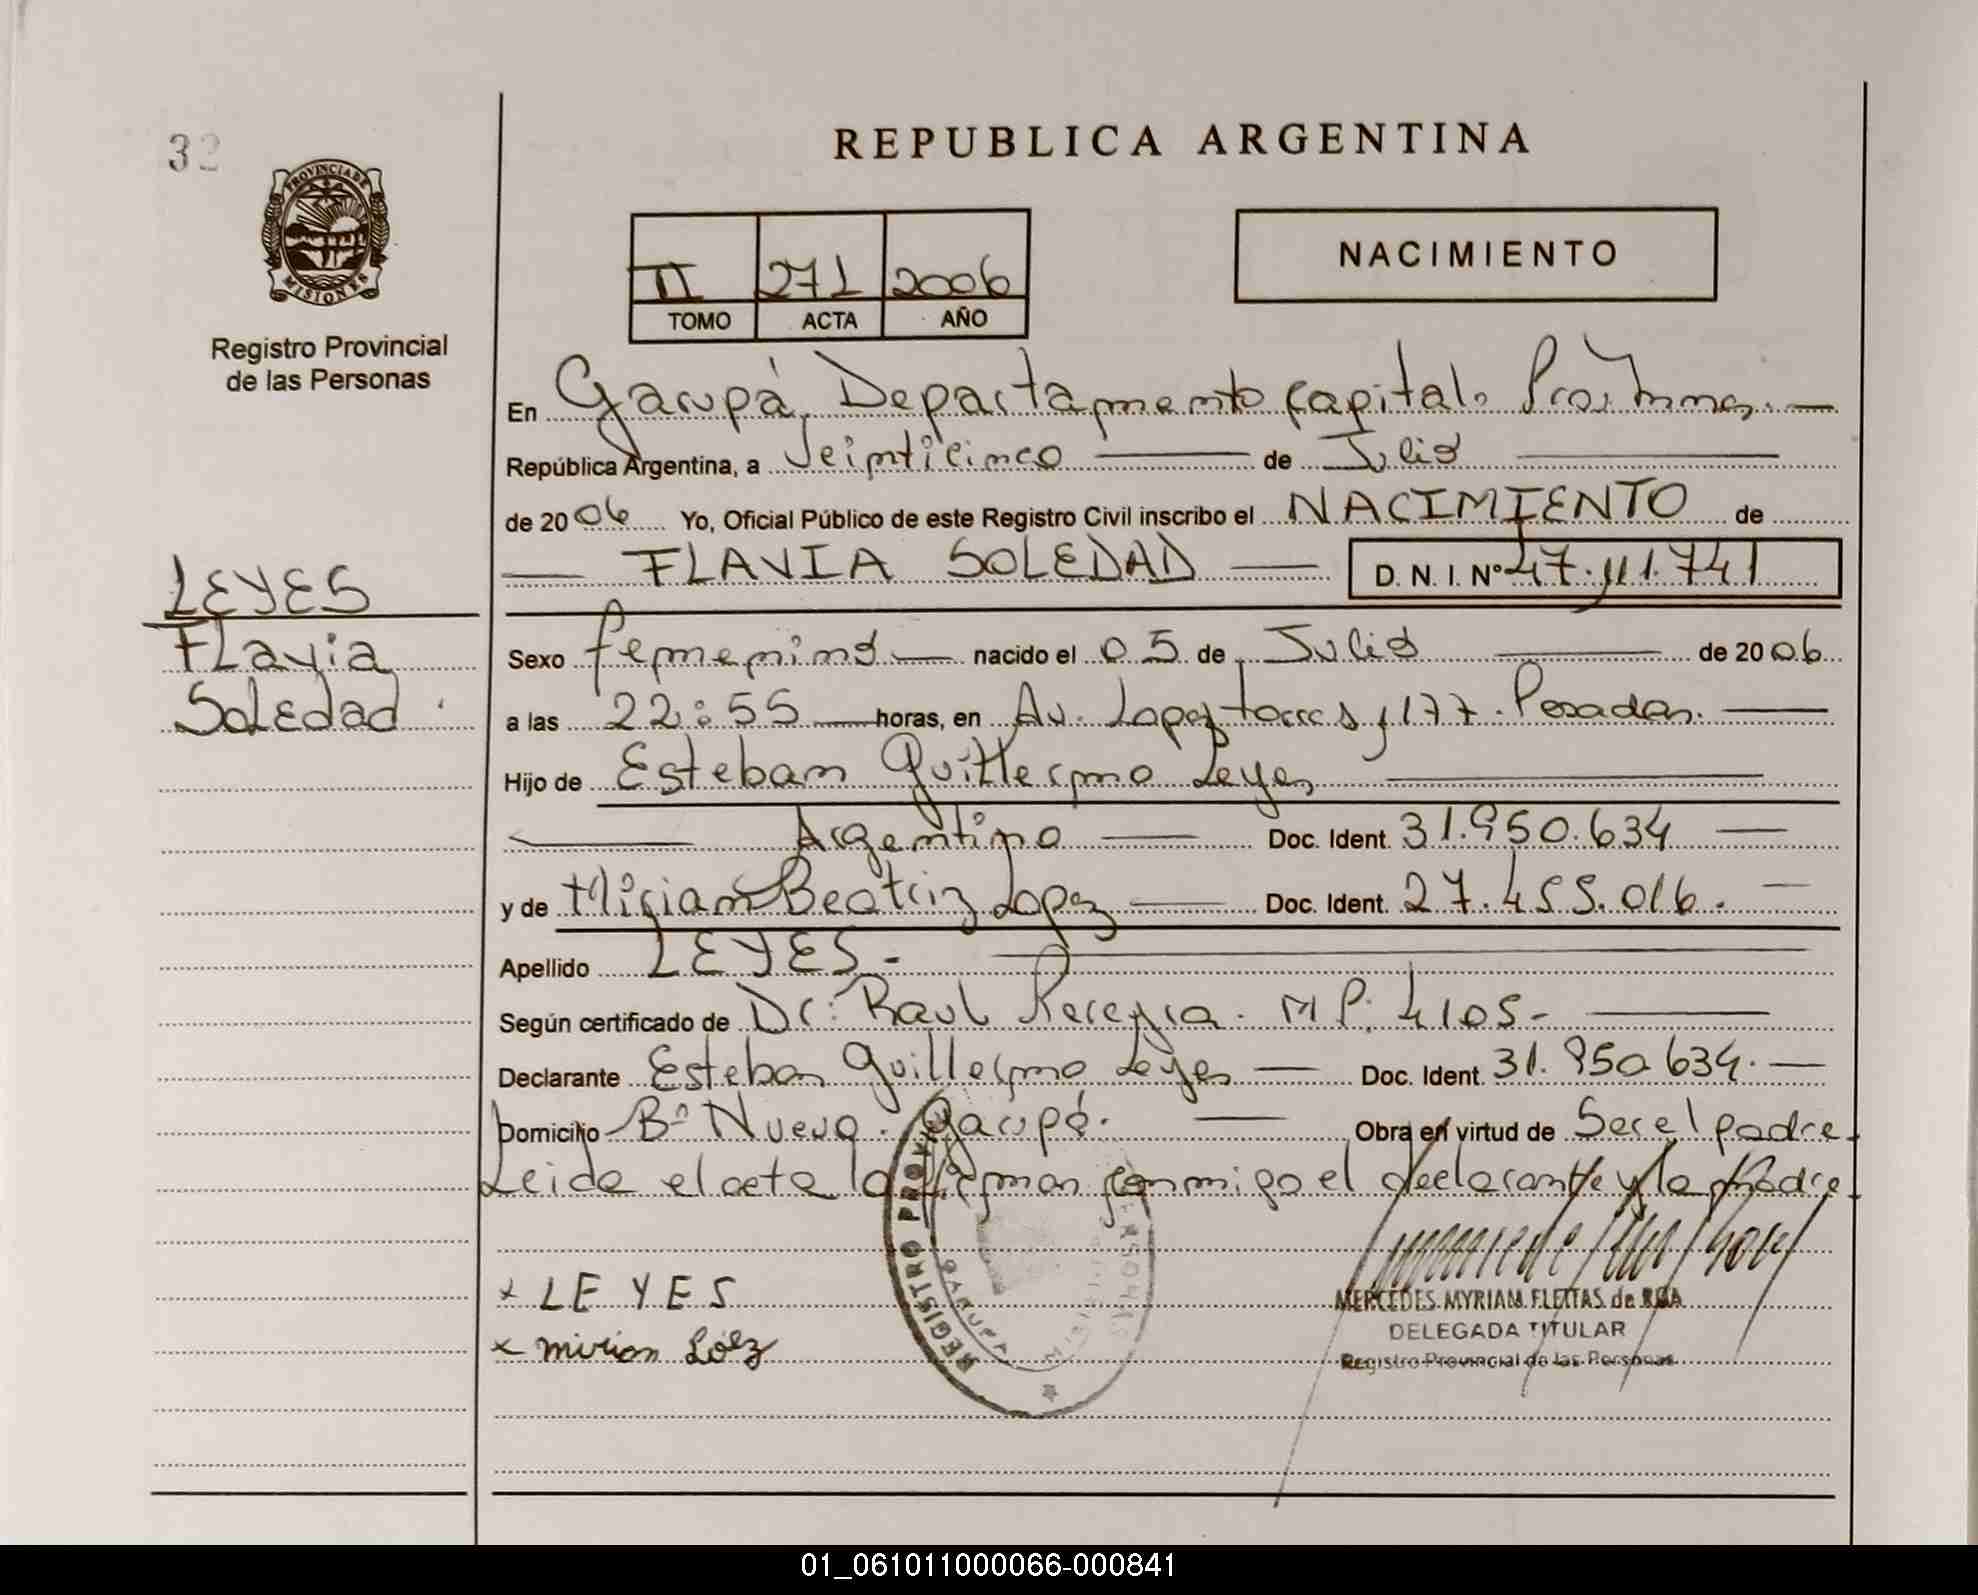 32
PROVINCIA DE
MISIONES
Registro Provincial
de las Personas
REPUBLICA ARGENTINA
II 271 2006
TOMO ACTA AÑO
NACIMIENTO
En Garupá, Departamento Capital. Prov.
República Argentina, a Veinticinco de Julio
de 2006 Yo, Oficial Público de este Registro Civil inscribo el NACIMIENTO de
FLAVIA SOLEDAD D. N. I. Nº 47.111.741
LEYES
Flavia
Soledad
Sexo femenino nacido el 05 de Julio de 2006
a las 22:55 horas, en Av. Lopez torres y 177. Posadas.
Hijo de Esteban Guillermo Leyes
Argentino Doc. Ident. 31.950.634
y de Miriam Beatriz Lopez Doc. Ident. 27.455.016.
Apellido LEYES.-
Según certificado de Dr: Raul Pereyra. M P. 4105-
Declarante Esteban Guillermo Leyes Doc. Ident. 31.950.634.
Domicilio Bº Nuevo. Garupá. Obra en virtud de Ser el padre.
Leida el acta la firman conmigo el declarante y la Madre.
REGISTRO PROVI
GARUPA
x LEYES
x mirian
MERCEDES MYRIAM FLEITAS de ROA
DELEGADA TITULAR
Registro Provincial de las Personas
01_061011000066-000841